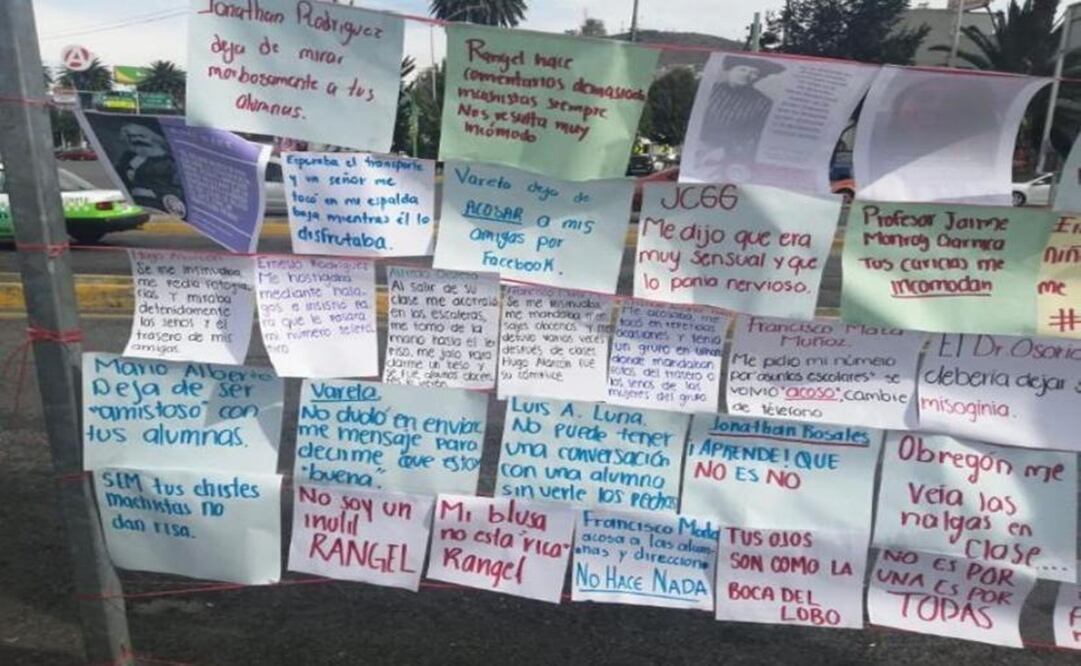 Jonathan Rodriguez
deja de mirar
morbosamente a tus
alumnas.
Rangel hace
comentarios demasiado
machistas siempre
Nos resulta muy
incómodo
Esperaba el transporte
y un señor me
tocó en mi espalda
baja mientras él lo
disfrutaba.
Varela deja de
ACOSAR a mis
amigas por
Facebook.
JCGG
Me dijo que era
muy sensual y que
lo ponia nervioso.
Profesor Jaime
Monroy
Tus caricias me
incomodan
niñ
me
#
Se me insinuaba,
me pedia
y miraba
detenidamente
los senos y el
trasero de mis
amigas.
Ernesto Rodríguez
Me hostigaba
mediante
e insistia
que le pasara
mi número
Al salir de su
clase me acorraló
en las escaleras,
me tomo de la
mano hasta el
piso, me jalo para
darme un beso y
Se me insinuaba
me mandaba
obscenos y me
detuvo varias veces
después de clases
Hugo Alarcon fue
su cómplice
Me acosaba, me
tocó en repetidas
ocasiones y tenia
un grupo en
donde mandaban
fotos del trasero o
los senos de las
mujeres del grupo
Francisco Mata
Muñoz.
Me pidio mi número
por "asuntos escolares" se
volvió "acoso", cambie
de teléfono
El Dr. Osorio
deberia dejar
misoginia.
Mario Alberto
Deja de ser
"amistoso" con
tus alumnas.
Varela
No dudó en enviar
me mensaje para
decirme que estoy
"buena."
Luis A. Luna.
No puede tener
una conversación
con una alumna
sin verle los pechos
Jonathan Rosales
¡APRENDE! QUE
NO ES NO
Obregón me
veía las
nalgas en
clase....
SEM tus chistes
machistas no
dan risa.
No soy un
inutil
RANGEL
Mi blusa
no esta "rica"
Rangel
Francisco Mata
acosa a las alum-
nas y direccion
NO HACE NADA
TUS OJOS
SON COMO LA
BOCA DEL
LOBO
NO ES POR
UNA ES POR
TODAS